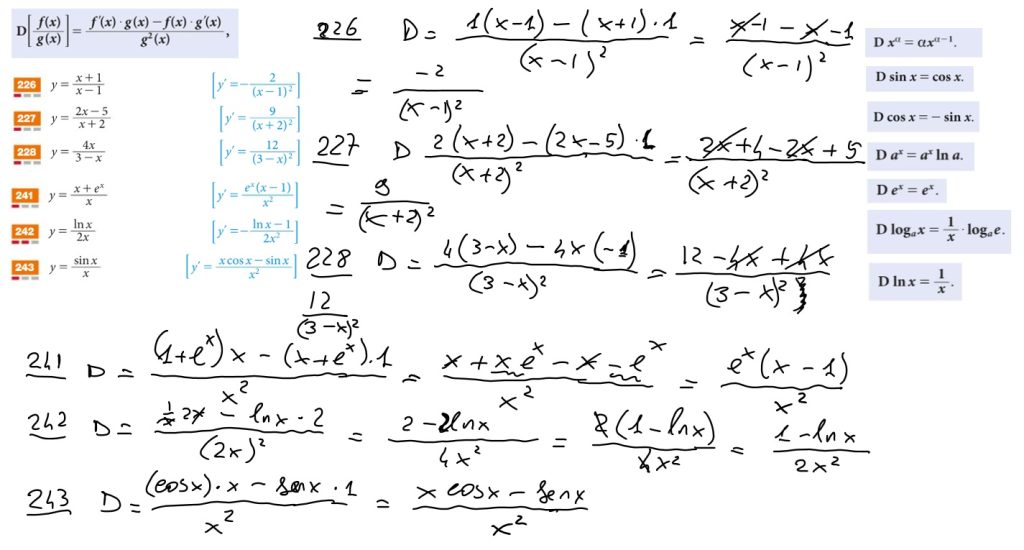 D[f(x)/g(x)] = (f′(x) · g(x) − f(x) · g′(x))/g²(x),
226 y = (x + 1)/(x − 1) [y′ = −2/(x − 1)²]
227 y = (2x − 5)/(x + 2) [y′ = 9/(x + 2)²]
228 y = 4x/(3 − x) [y′ = 12/(3 − x)²]
241 y = (x + eˣ)/x [y′ = eˣ(x − 1)/x²]
242 y = ln x/2x [y′ = −(ln x − 1)/2x²]
243 y = sin x/x [y′ = (x cos x − sin x)/x²]
226 D = (1(x−1) − (x+1)·1)/(x−1)² = (x−1−x−1)/(x−1)²
= −2/(x−1)²
227 D (2(x+2) − (2x−5)·1)/(x+2)² = (2x+4−2x+5)/(x+2)²
= 9/(x+2)²
228 D = (4(3−x) − 4x(−1))/(3−x)² = (12−4x+4x)/(3−x)²
12/(3−x)²
241 D = ((1+eˣ)x − (x+eˣ)·1)/x² = (x + xeˣ − x − eˣ)/x² = eˣ(x−1)/x²
242 D = (1/x 2x − lnx·2)/(2x)² = (2−2lnx)/4x² = 2(1−lnx)/4x² = (1−lnx)/2x²
243 D = ((cosx)·x − senx·1)/x² = (x cosx − senx)/x²
D xᵅ = αxᵅ⁻¹.
D sin x = cos x.
D cos x = − sin x.
D aˣ = aˣ ln a.
D eˣ = eˣ.
D logₐx = 1/x · logₐe.
D ln x = 1/x.